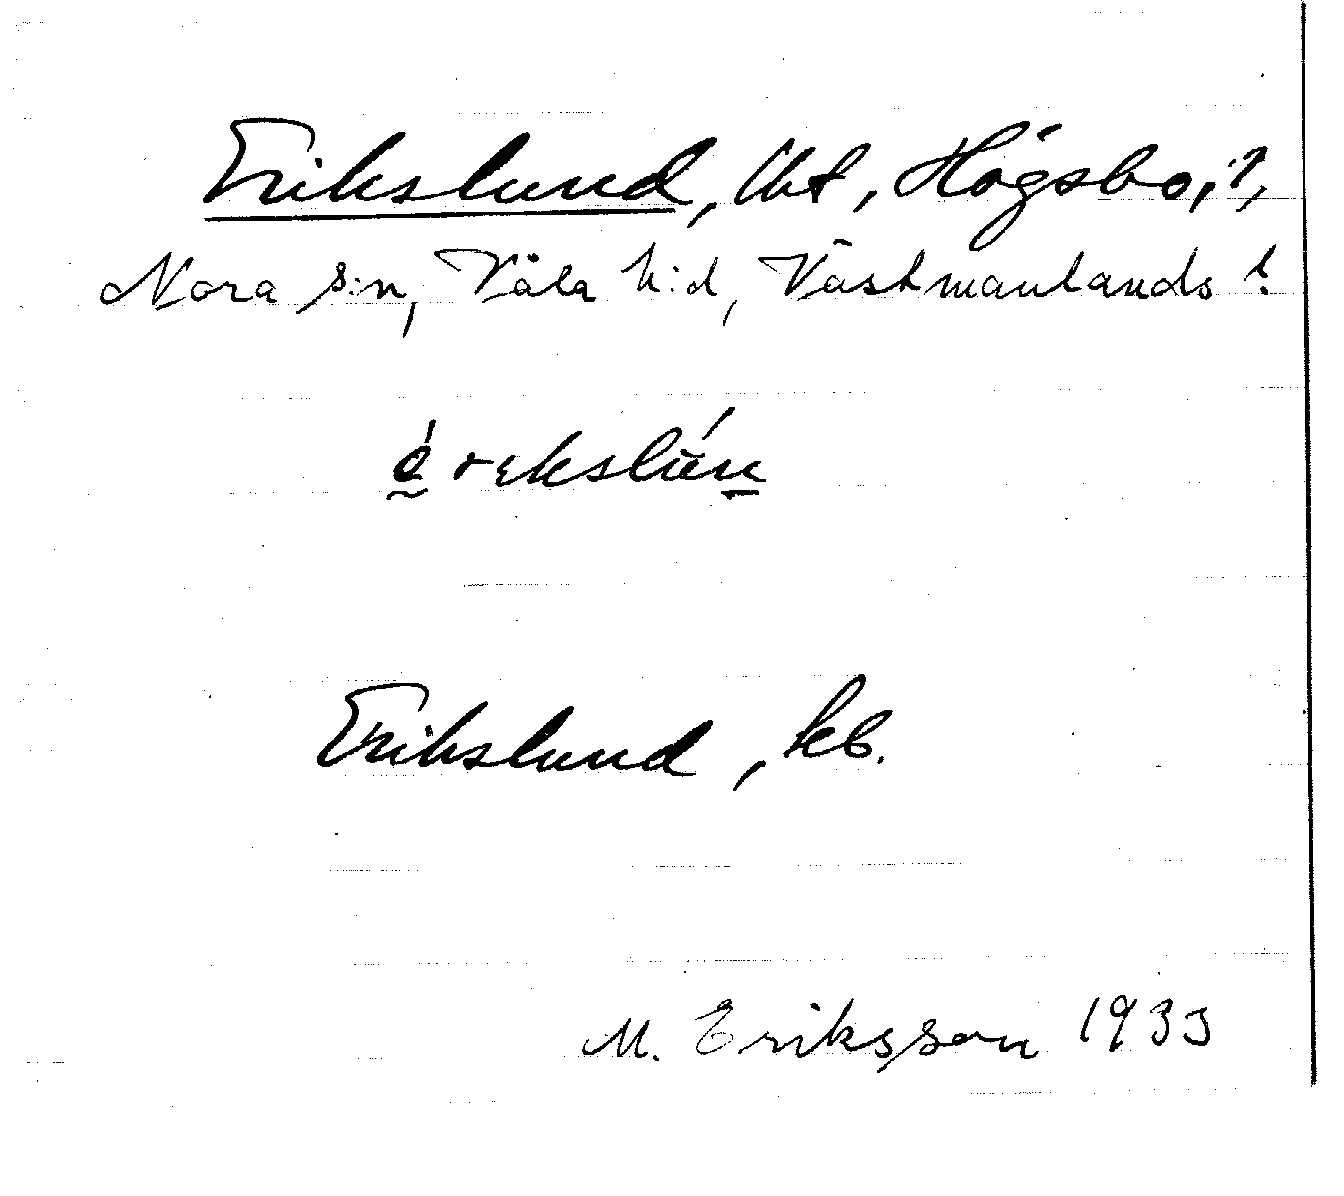 Erikslund, lht, Högsbo, ?,
Nora s:n, Våla h:d, Västmanlands l.
érekslún
Erikslund, kb.
M. Eriksson 1933